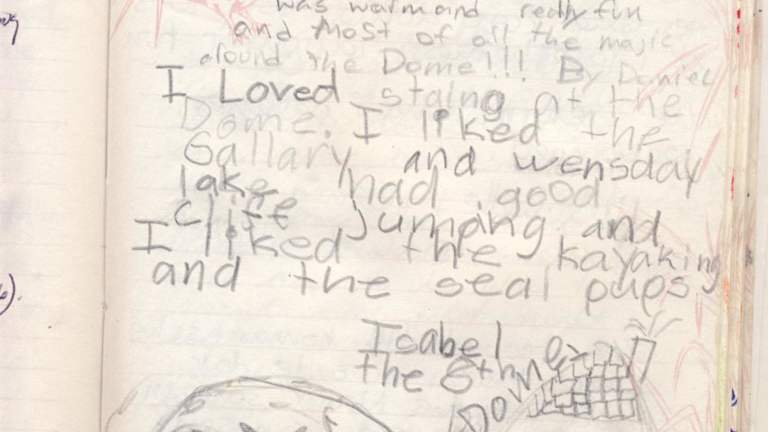 was warm and really fun
and Most of all the magic
around the Dome!!! By Daniel
I Loved staing at the
Dome. I liked the
Gallary and wensday
lake had good
cliff jumping and
I liked the kayaking
and the seal pups
Isabel
the 6th
Dome